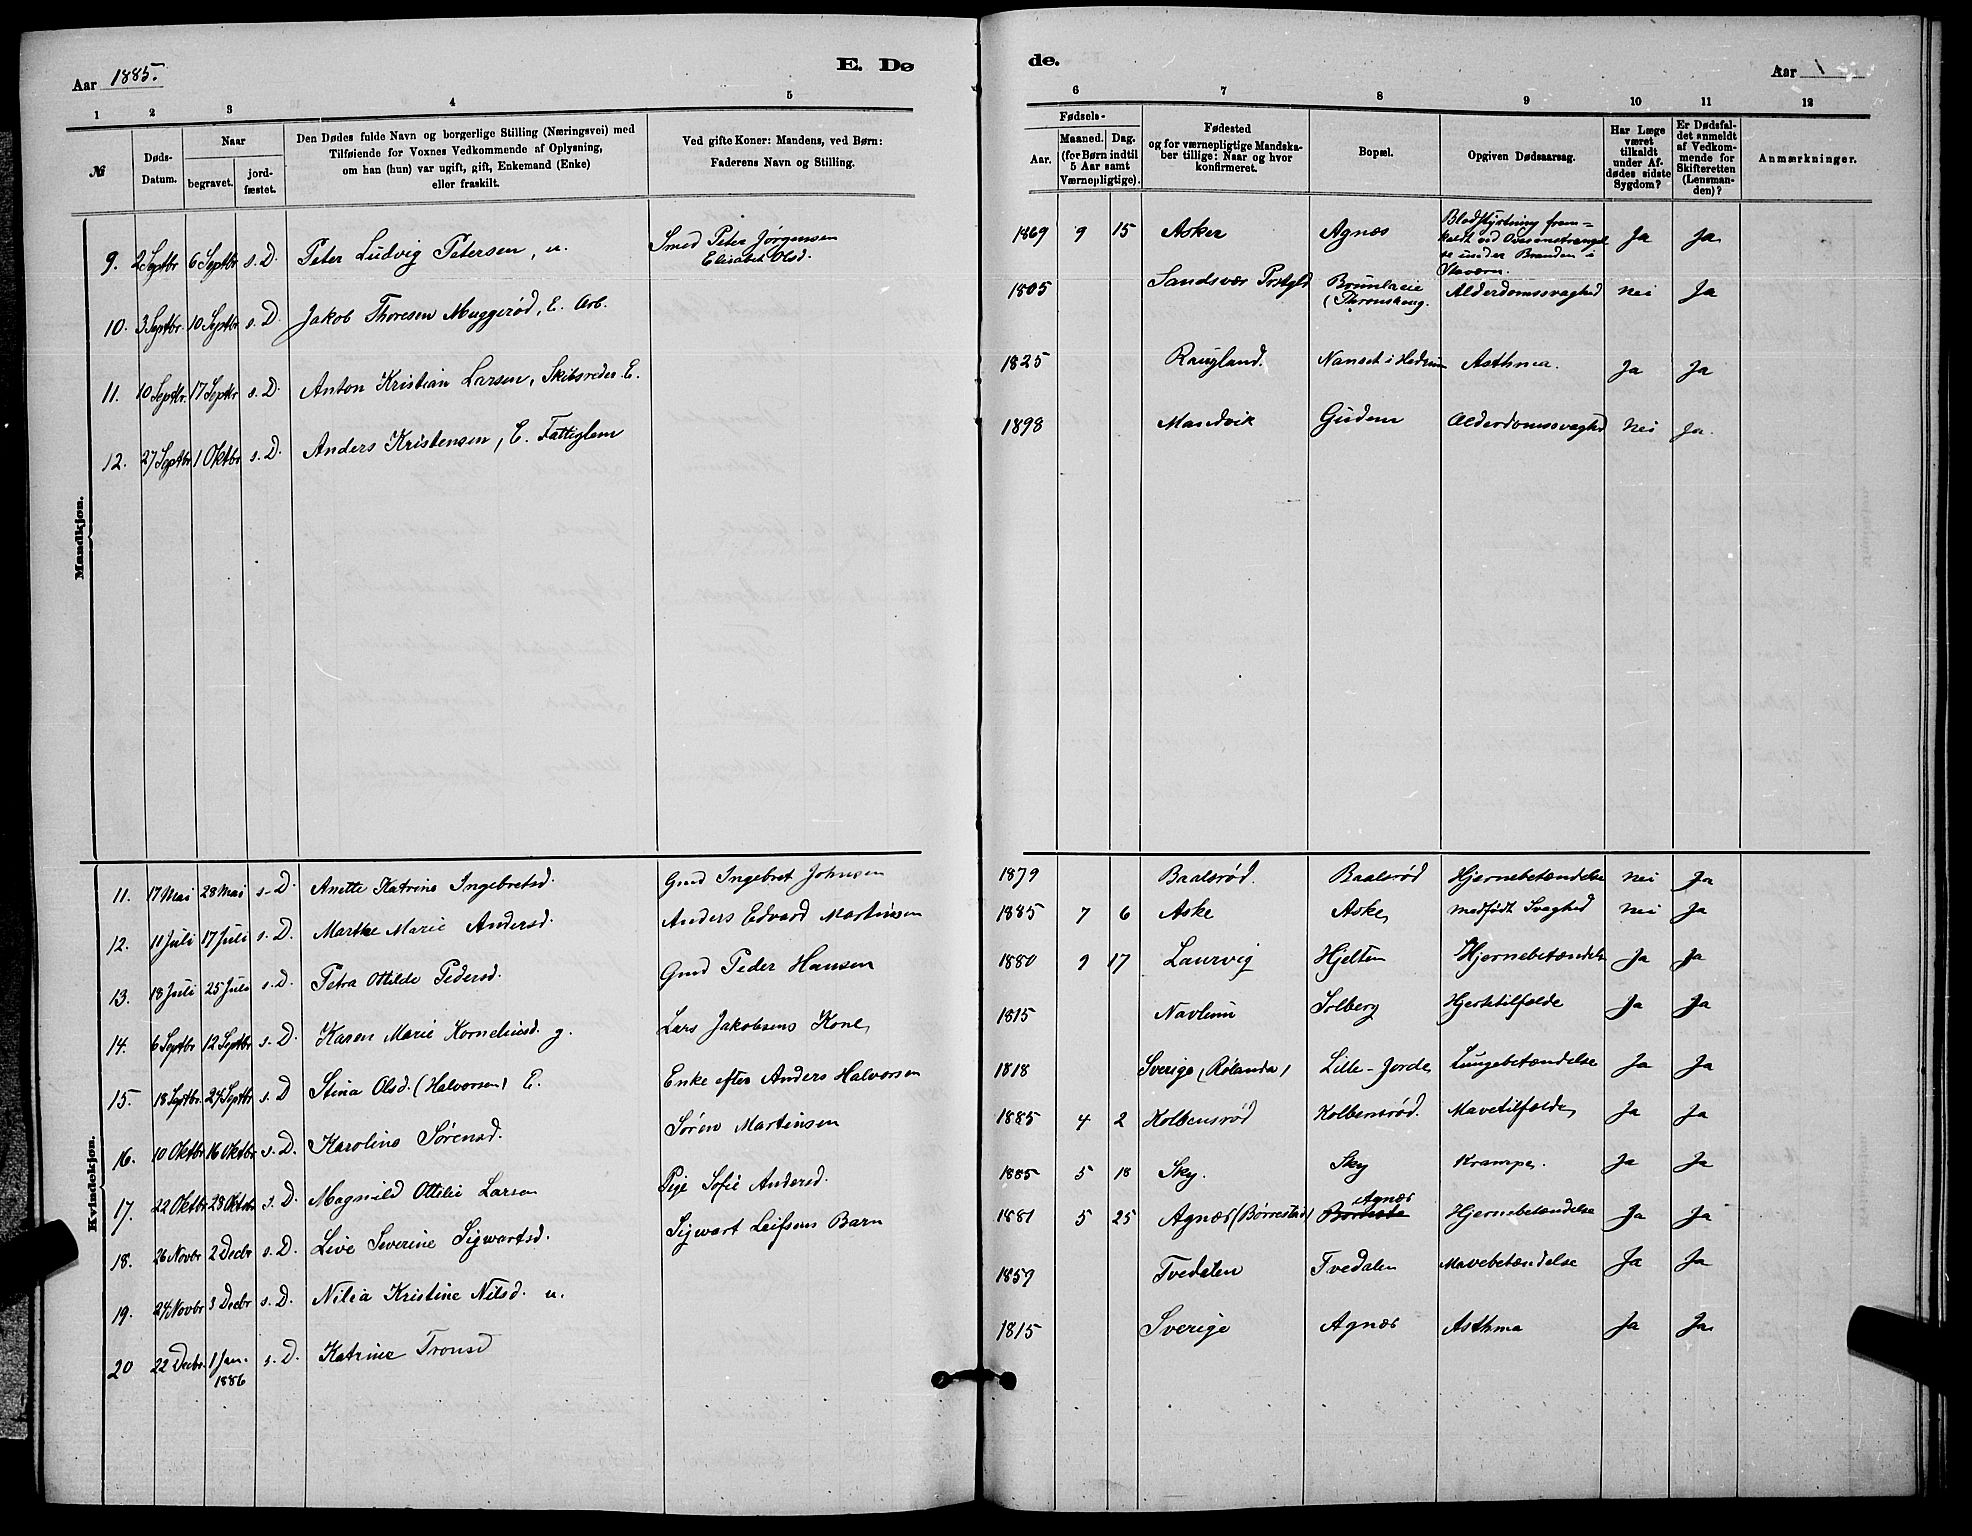 Aar 1885.
E. Dø
1 2 3 4 5
№
Døds-Datum.
Naar
begravet.
jord-fæstet.
Den Dødes fulde Navn og borgerlige Stilling (Næringsvei) med
Tilføiende for Voxnes Vedkommende af Oplysning,
om han (hun) var ugift, gift, Enkemand (Enke)
eller fraskilt.
Ved gifte Koner: Mandens, ved Børn:
Faderens Navn og Stilling.
Mandkjøn.
9. 2 Septbr 6 Septbr s. D. Peter Ludvig Petersen, u. Smed Peter Jørgensen
Elisabet Olsd.
10. 3 Septbr. 10 Septbr s. D. Jakob Thoresen Muggerød, E. Arb.
11. 10 Septbr. 17 Septbr s. D. Anton Kristian Larsen, Skibsreder E.
12. 27 Septbr 1 Oktbr s. D. Anders Kristensen, E. Fattiglem
Kvindekjøn.
11. 17 Mai 28 Mai s. D. Anette Katrine Ingebretsd. Gmd Ingebret Johnsen
12. 11 Juli 17 Juli s. D. Marthe Marie Andersd. Anders Edvard Martinsen
13. 18 Juli 25 Juli s. D. Petra Ottilde Pedersd. Gmd Peder Hansen
14. 6 Septbr 12 Septbr s. D. Karen Marie Korneliusd. g. Lars Jakobsens Kone
15. 18 Septbr. 24 Septbr s. D Stina Olsd. (Halvorsen) E. Enke efter Anders Halvorsen
16. 10 Oktbr 16 Oktbr s. D. Karoline Sørensd. Søren Martinsen
17. 22 Oktbr 28 Oktbr s. D. Magnild Ottilie Larsen Pige Sofie Andersd.
18. 26 Novbr 2 Decbr s. D. Live Severine Sigwartsd. Sigwart Leifsens Barn
19. 24 Novbr 3 Decbr s. D. Nilia Kristine Nilsd. u.
20 22 Decbr. 1 Jan. s. D. Katrine Tronsd
1886
de.
Aar 1
6 7 8 9 10 11 12
Fødsels-
Aar.
Maaned. Dag.
(for Børn indtil
5 Aar samt
Værnepligtige).
Fødested
og for værnepligtige Mandska-
ber tillige: Naar og hvor
konfirmeret.
Bopæl.
Opgiven Dødsaarsag.
Har Læge
været
tilkaldt
under Af-
dødes sidste
Sygdom?
Er Dødsfal-
det anmeldt
af Vedkom-
mende for
Skifteretten
(Lensman-
den)?
Anmærkninger.
1869 9 15 Asker Agnæs Blodstyrtning frem-
kaldt ved Overanstrengel
se under Branden i
Stavern. Ja Ja
1805 Sandsvær Prstgld Brunlanæ
Alderdomssvaghed Nei Ja
1825 Raugland. Nanset i Hedrum Asthma. Ja Ja
1898 Mandvik Gudem Alderdomssvaghed Nei Ja.
1879 Baalsrød. Baalsrød Hjernebetændelse Nei Ja
1885 7 6 Aske Aske medfødt Svaghed Nei Ja
1880 9 17 Laurvig Hjelten Hjernebetændelse Ja Ja
1815 Navlum Solberg Hjertetilfælde Ja Ja
1818 Sverige (Rølanda) Lille-Jorde Lungebetændelse Ja Ja
1885 4 2 Kolbensrød Kolbensrød. Mavetilfælde Ja Ja
1885 5 18 Sky. Sky Krampe. Ja Ja
1881 5 25 Agnæs (Børrestad) Agnæs Hjernebetændelse Ja Ja
1859 Tvedalen Tvedalen Mavebetændelse Ja Ja
1815 Sverige Agnæs Asthma Ja Ja